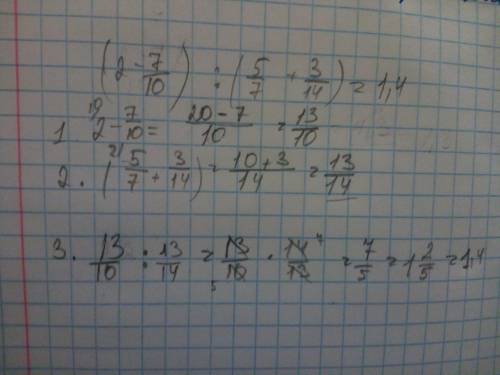 (2 - 7/10) : (5/7 + 3/14) = 1,4
1 2 - 7/10 = 20-7/10 = 13/10
2. (5/7 + 3/14) = 10+3/14 = 13/14
3. 13/10 : 13/14 = 13/10 · 14/13 = 7/5 = 1 2/5 = 1,4